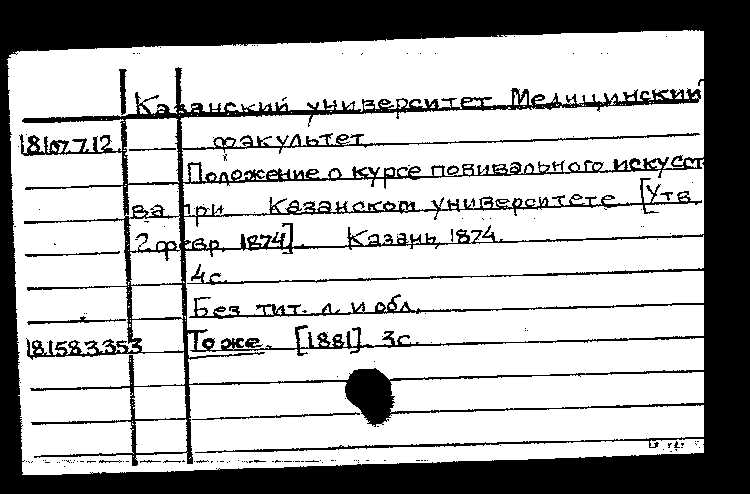 Казанский университет Медицинский
18.107.7.12 факультет
Положение о курсе повивального искусст
ва при Казанском университете [Утв.
2 февр. 1874]. Казань, 1874.
4 с.
Без тит. л. и обл.
18.158.3.353 То же. [1881]. 3 с.